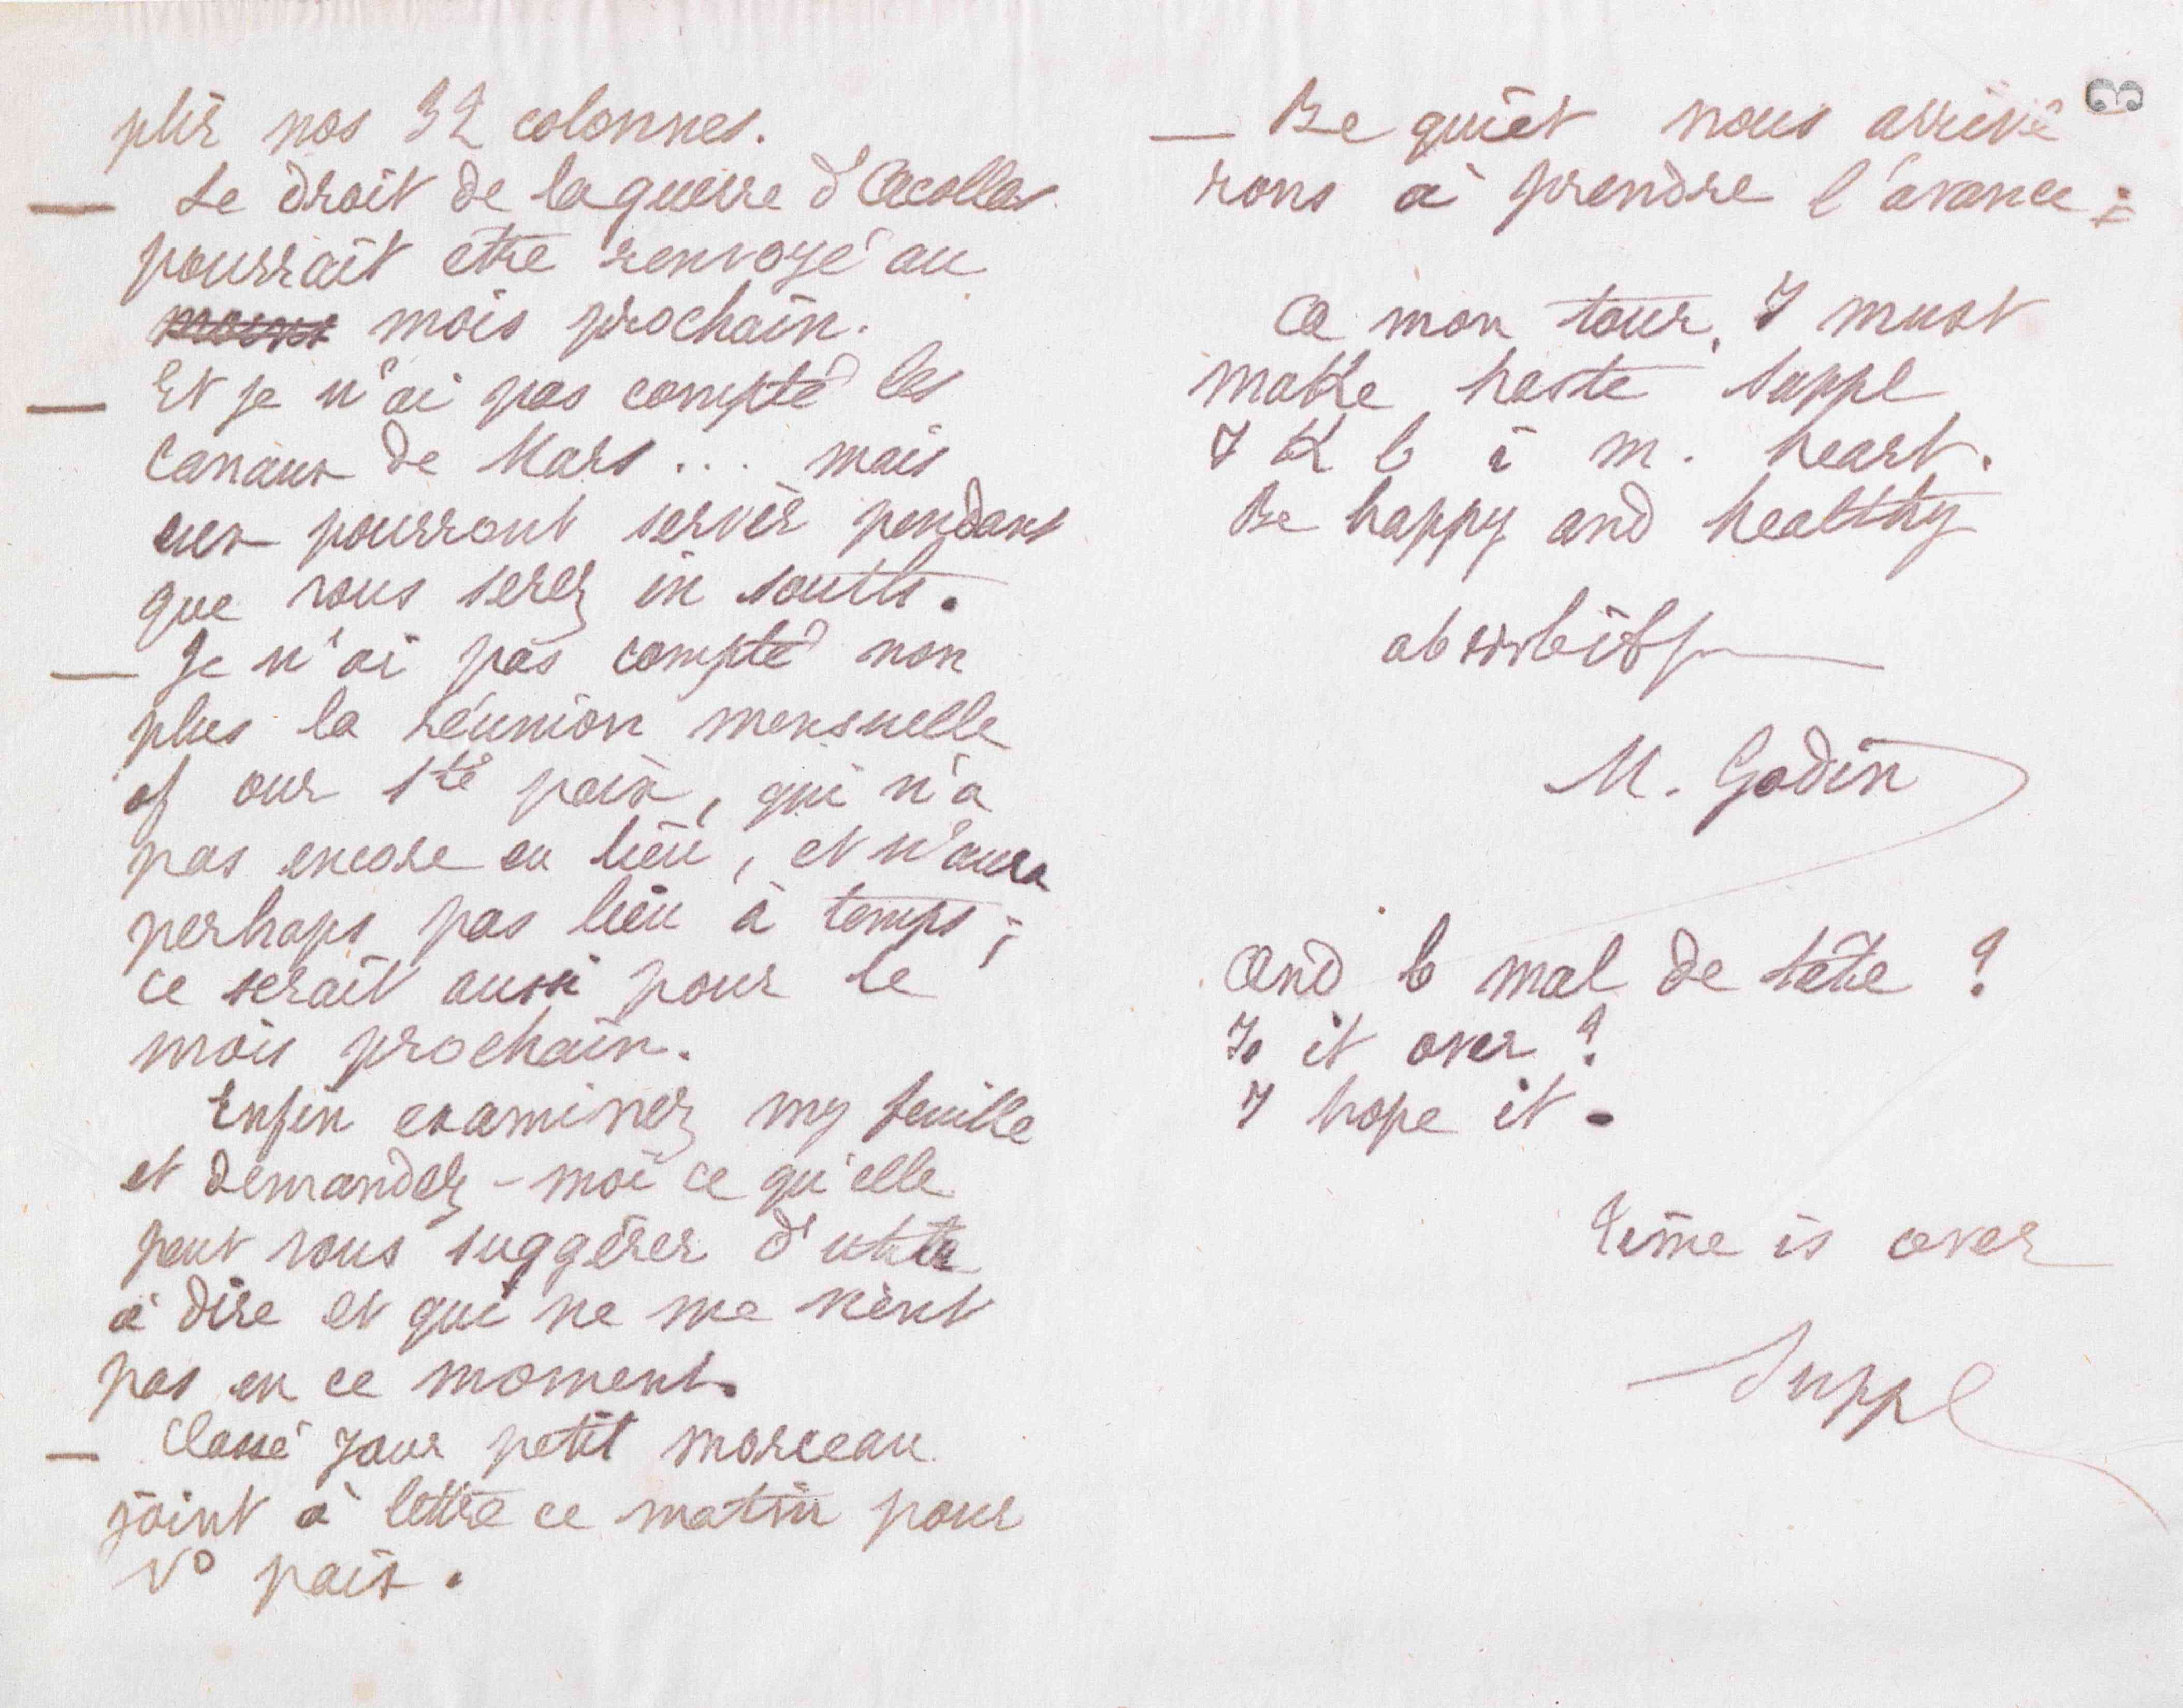 plir nos 32 colonnes.
— Le droit de la guerre d'Acollas
pourrait être renvoyé au
mois prochain.
— Et je n'ai pas compté les
canaux de Mars... mais
eux pourront servir pendant
que vous serez in south.
— Je n'ai pas compté non
plus la réunion mensuelle
of our sté paix, qui n'a
pas encore eu lieu, et n'aura
perhaps pas lieu à temps ;
ce serait aussi pour le
mois prochain.
Enfin examinez my feuille
et demandez-moi ce qu'elle
peut vous suggérer d'utile
à dire et qui ne me vient
pas en ce moment.
— Classé your petit morceau
joint à lettre ce matin pour
N° paix.
3
— Be quiet nous arrive
rons à prendre l'avance ;
A mon tour, I must
make haste suppl
I K b i m. heart.
Be happy and healthy
M. Godin
And le mal de tête ?
Is it over ?
I hope it.
Time is over
Suppl